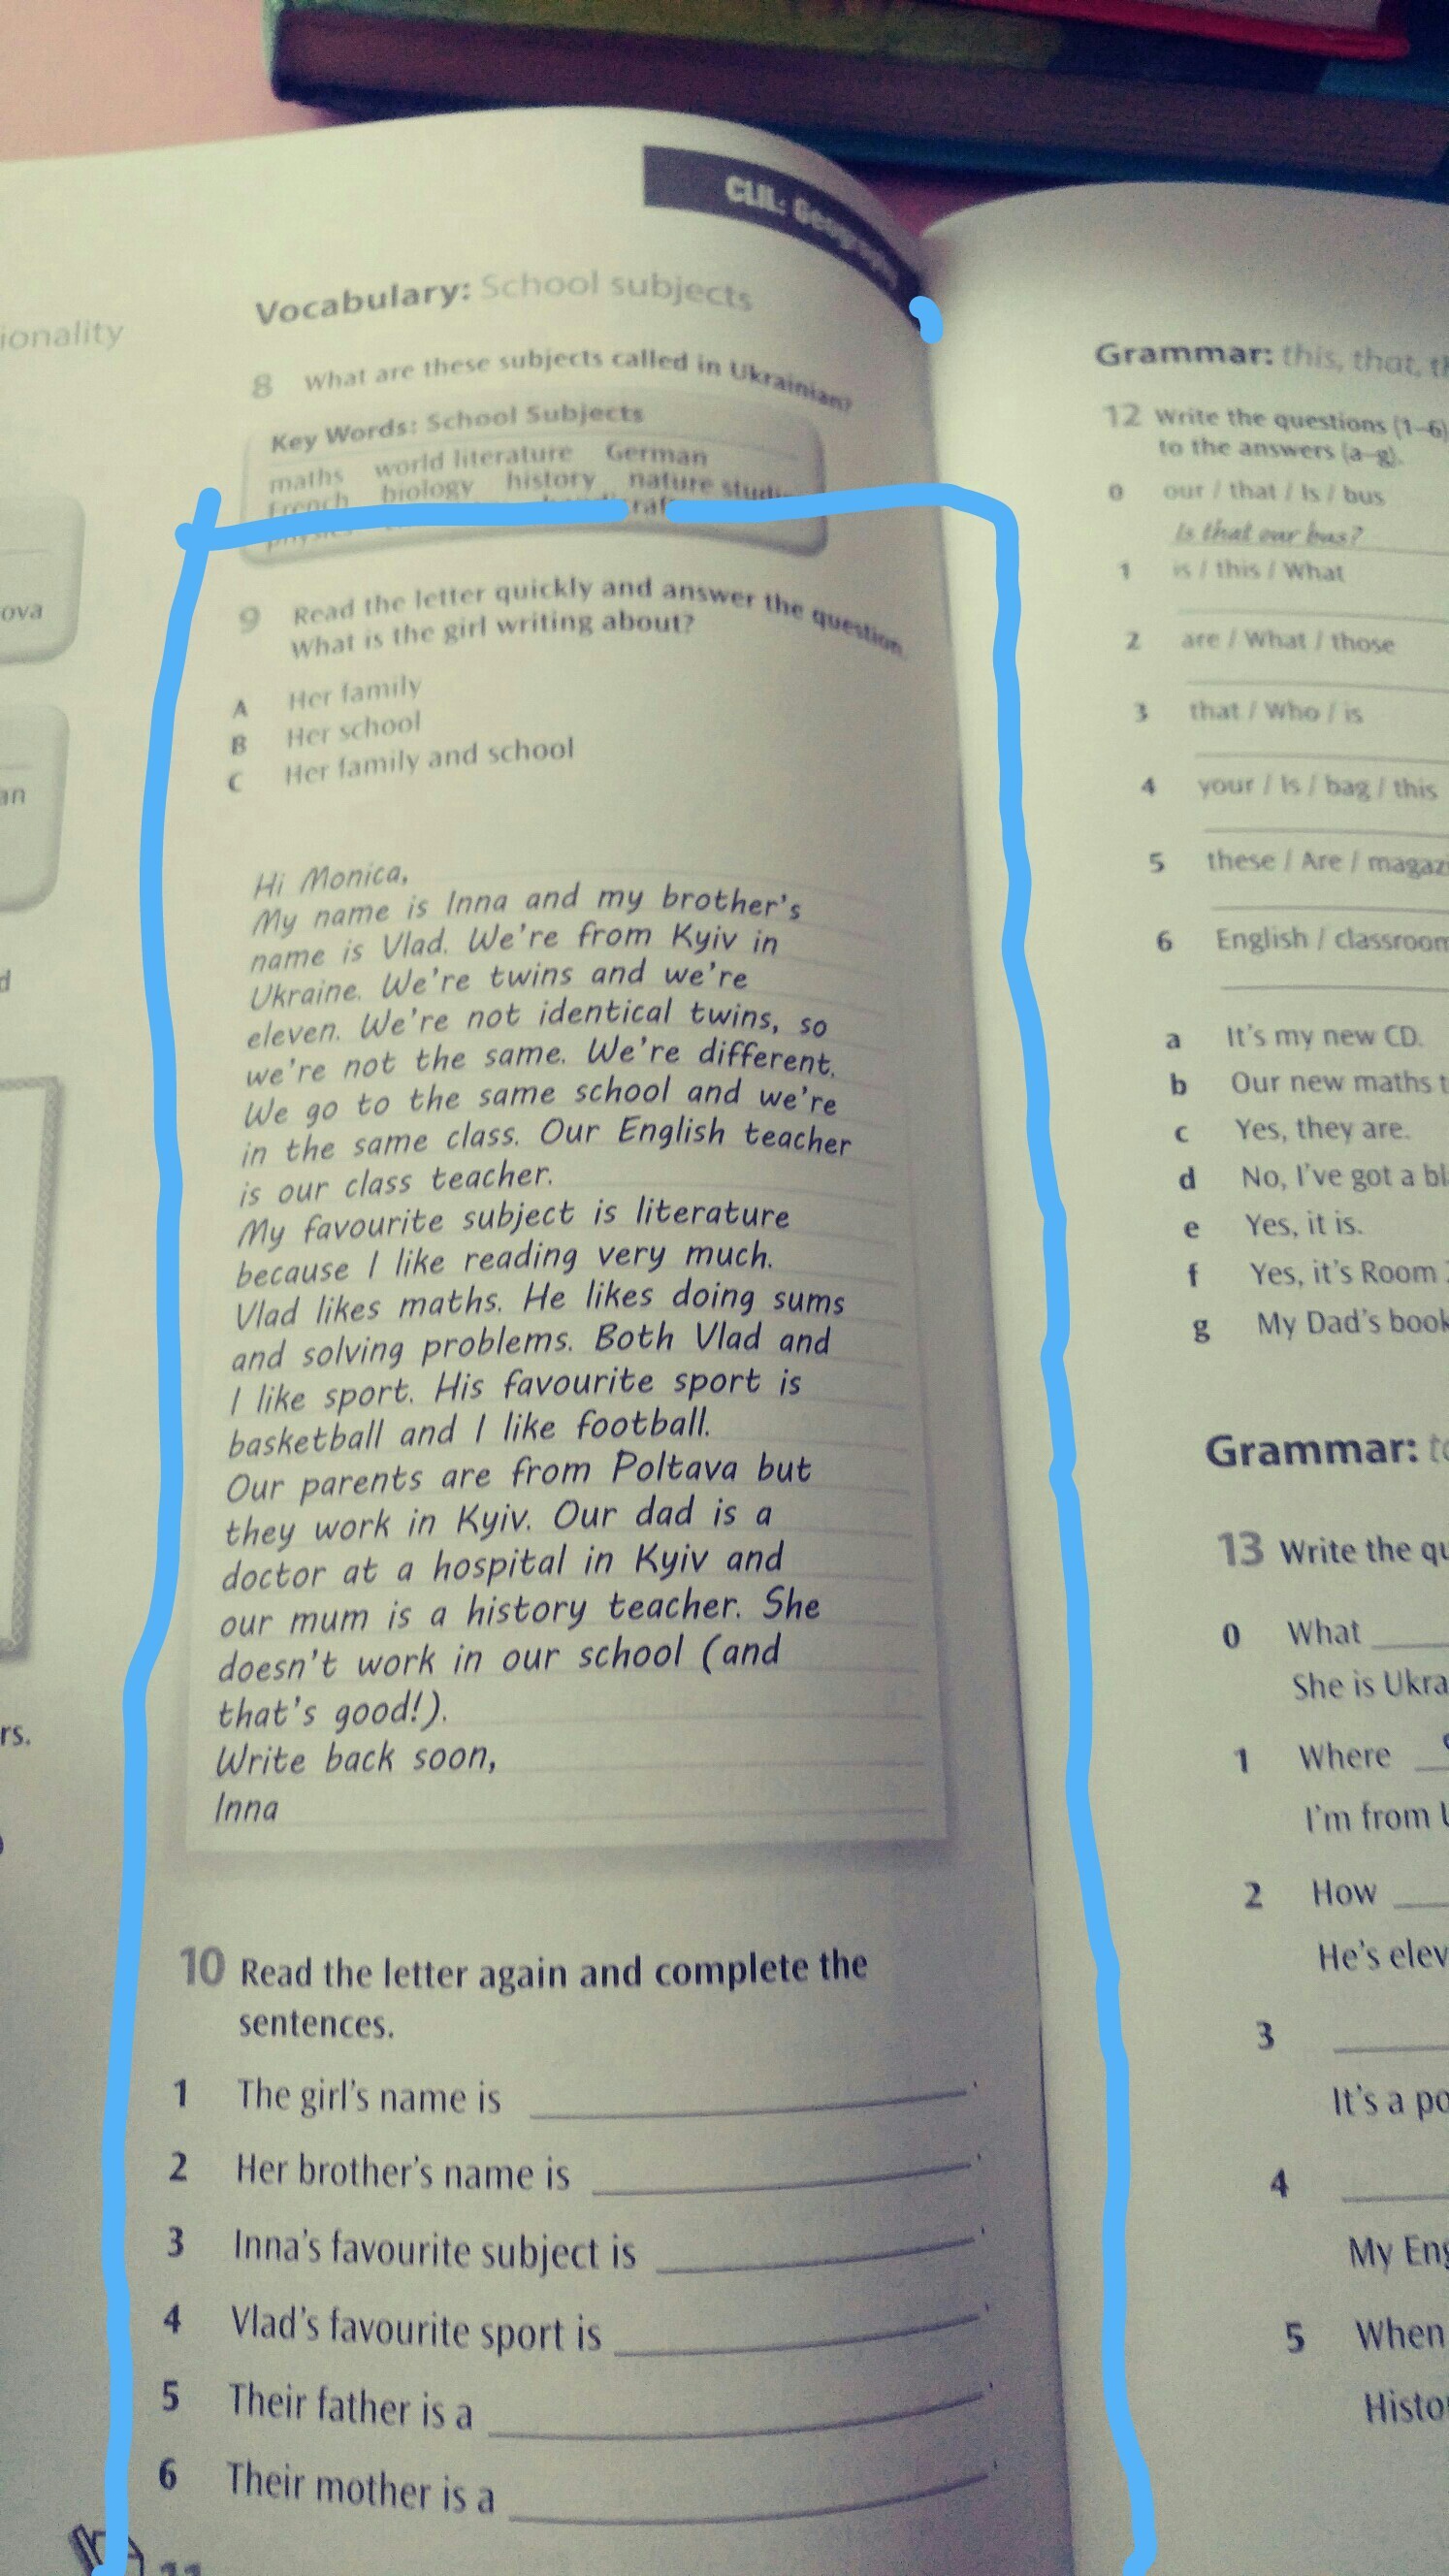 CLIL: Geography
ionality
ova
an
d
rs.
Vocabulary: School subjects
8 What are these subjects called in Ukrainian?
Key Words: School Subjects
maths world literature German
French biology history nature
9 Read the letter quickly and answer the question.
What is the girl writing about?
A Her family
B Her school
C Her family and school
Hi Monica,
My name is Inna and my brother's
name is Vlad. We're from Kyiv in
Ukraine. We're twins and we're
eleven. We're not identical twins, so
we're not the same. We're different.
We go to the same school and we're
in the same class. Our English teacher
is our class teacher.
My favourite subject is literature
because I like reading very much.
Vlad likes maths. He likes doing sums
and solving problems. Both Vlad and
I like sport. His favourite sport is
basketball and I like football.
Our parents are from Poltava but
they work in Kyiv. Our dad is a
doctor at a hospital in Kyiv and
our mum is a history teacher. She
doesn't work in our school (and
that's good!).
Write back soon,
Inna
10 Read the letter again and complete the
sentences.
1 The girl's name is ____.
2 Her brother's name is ____.
3 Inna's favourite subject is ____.
4 Vlad's favourite sport is ____.
5 Their father is a ____.
6 Their mother is a ____.
11
Grammar: this, that, th
12 Write the questions (1–6)
to the answers (a–g).
0 our / that / Is / bus
Is that our bus?
1 is / this / What
2 are / What / those
3 that / Who / is
4 your / Is / bag / this
5 these / Are / magaz
6 English / classroom
a It's my new CD.
b Our new maths t
c Yes, they are.
d No, I've got a bl
e Yes, it is.
f Yes, it's Room
g My Dad's book
Grammar: to
13 Write the qu
0 What ____
She is Ukra
1 Where ____
I'm from U
2 How ____
He's elev
3 ____
It's a po
4 ____
My Eng
5 When
Histo